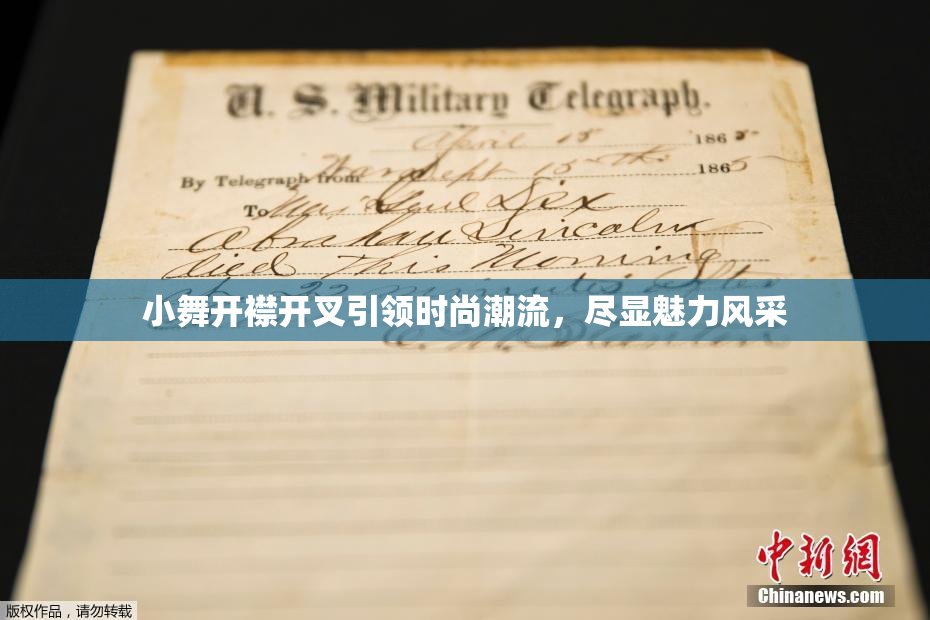 U. S. Military Telegraph.
April 15 1865
By Telegraph from War Dept 15th 1865
To Maj Genl Dix
Abraham Lincoln
died This Morning
22 minutes after
小舞开襟开叉引领时尚潮流，尽显魅力风采
E. M. Stanton
中新網
Chinanews.com
版权作品，请勿转载